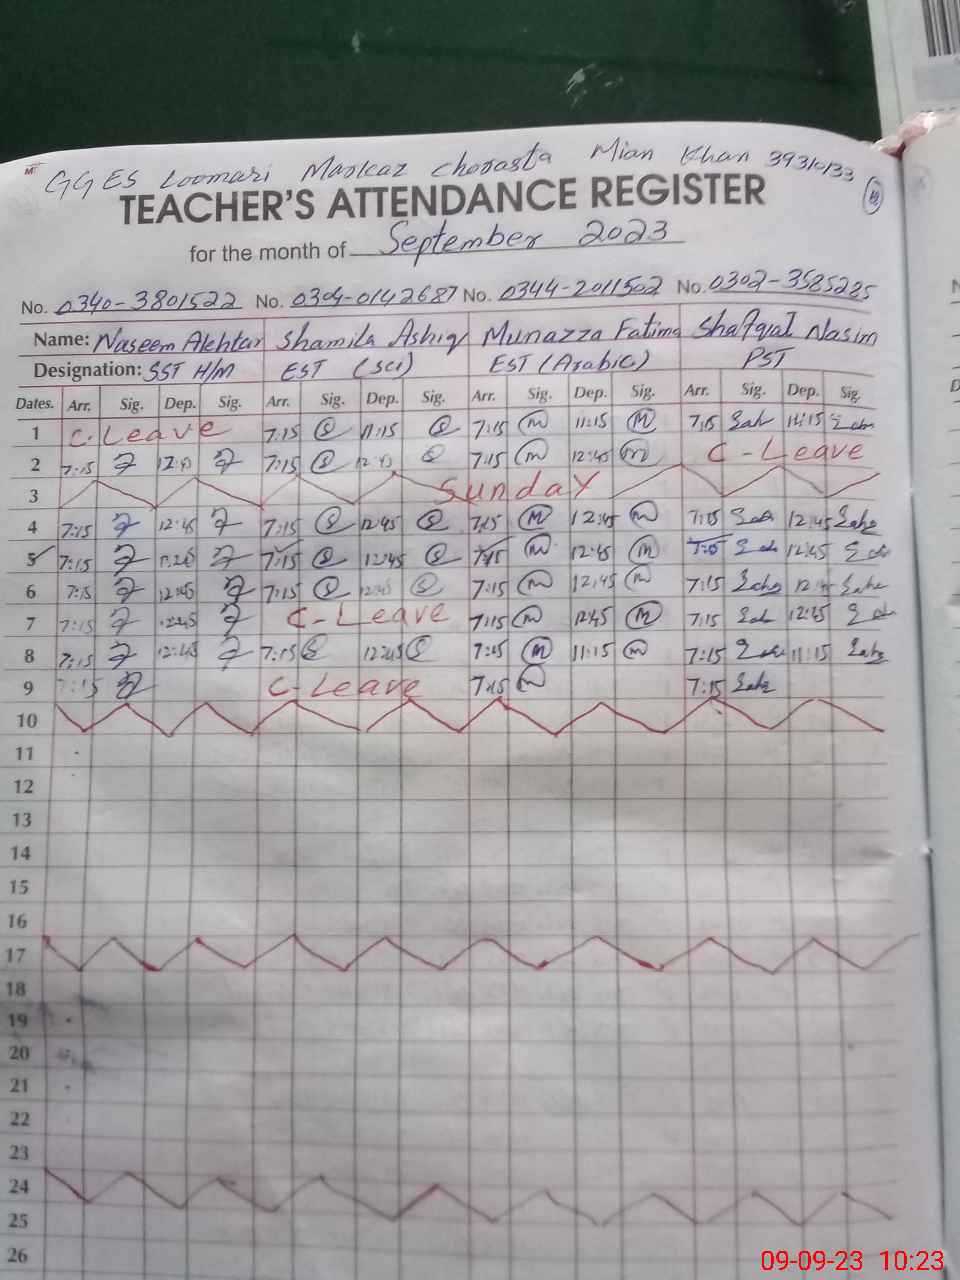 GGES Loomari Markaz Chorasta Mian Khan 39310133
TEACHER'S ATTENDANCE REGISTER
for the month of September 2023
No. 0340-3801522 No. 0304-0142687 No. 0344-2011502 No. 0302-3585285
Name: Naseem Akhtar Shamila Ashiq Munazza Fatima Shafqat Nasim
Designation: SST H/M EST (Sci) EST (Arabic) PST
Dates. Arr. Sig. Dep. Sig. Arr. Sig. Dep. Sig. Arr. Sig. Dep. Sig. Arr. Sig. Dep. Sig.
1 C-Leave 7:15 S 11:15 S 7:15 M 11:15 M 7:15 11:15
2 7:15 12:45 7:15 S 12:45 S 7:15 M 12:45 M C-Leave
3 Sunday
4 7:15 12:45 7:15 S 12:45 S 7:15 M 12:45 M 7:15 12:45
5 7:15 7:15 S 12:45 S 7:15 M 12:45 M 7:15 12:45
6 7:15 12:45 7:15 S 12:45 S 7:15 M 12:45 M 7:15
7 7:15 12:45 C-Leave 7:15 M 12:45 M 7:15 12:45
8 7:15 12:45 7:15 S 12:45 S 7:15 M 11:15 M 7:15 11:15
9 7:15 C-Leave 7:15 M 7:15
10
11
12
13
14
15
16
17
18
19
20
21
22
23
24
25
26
09-09-23 10:23